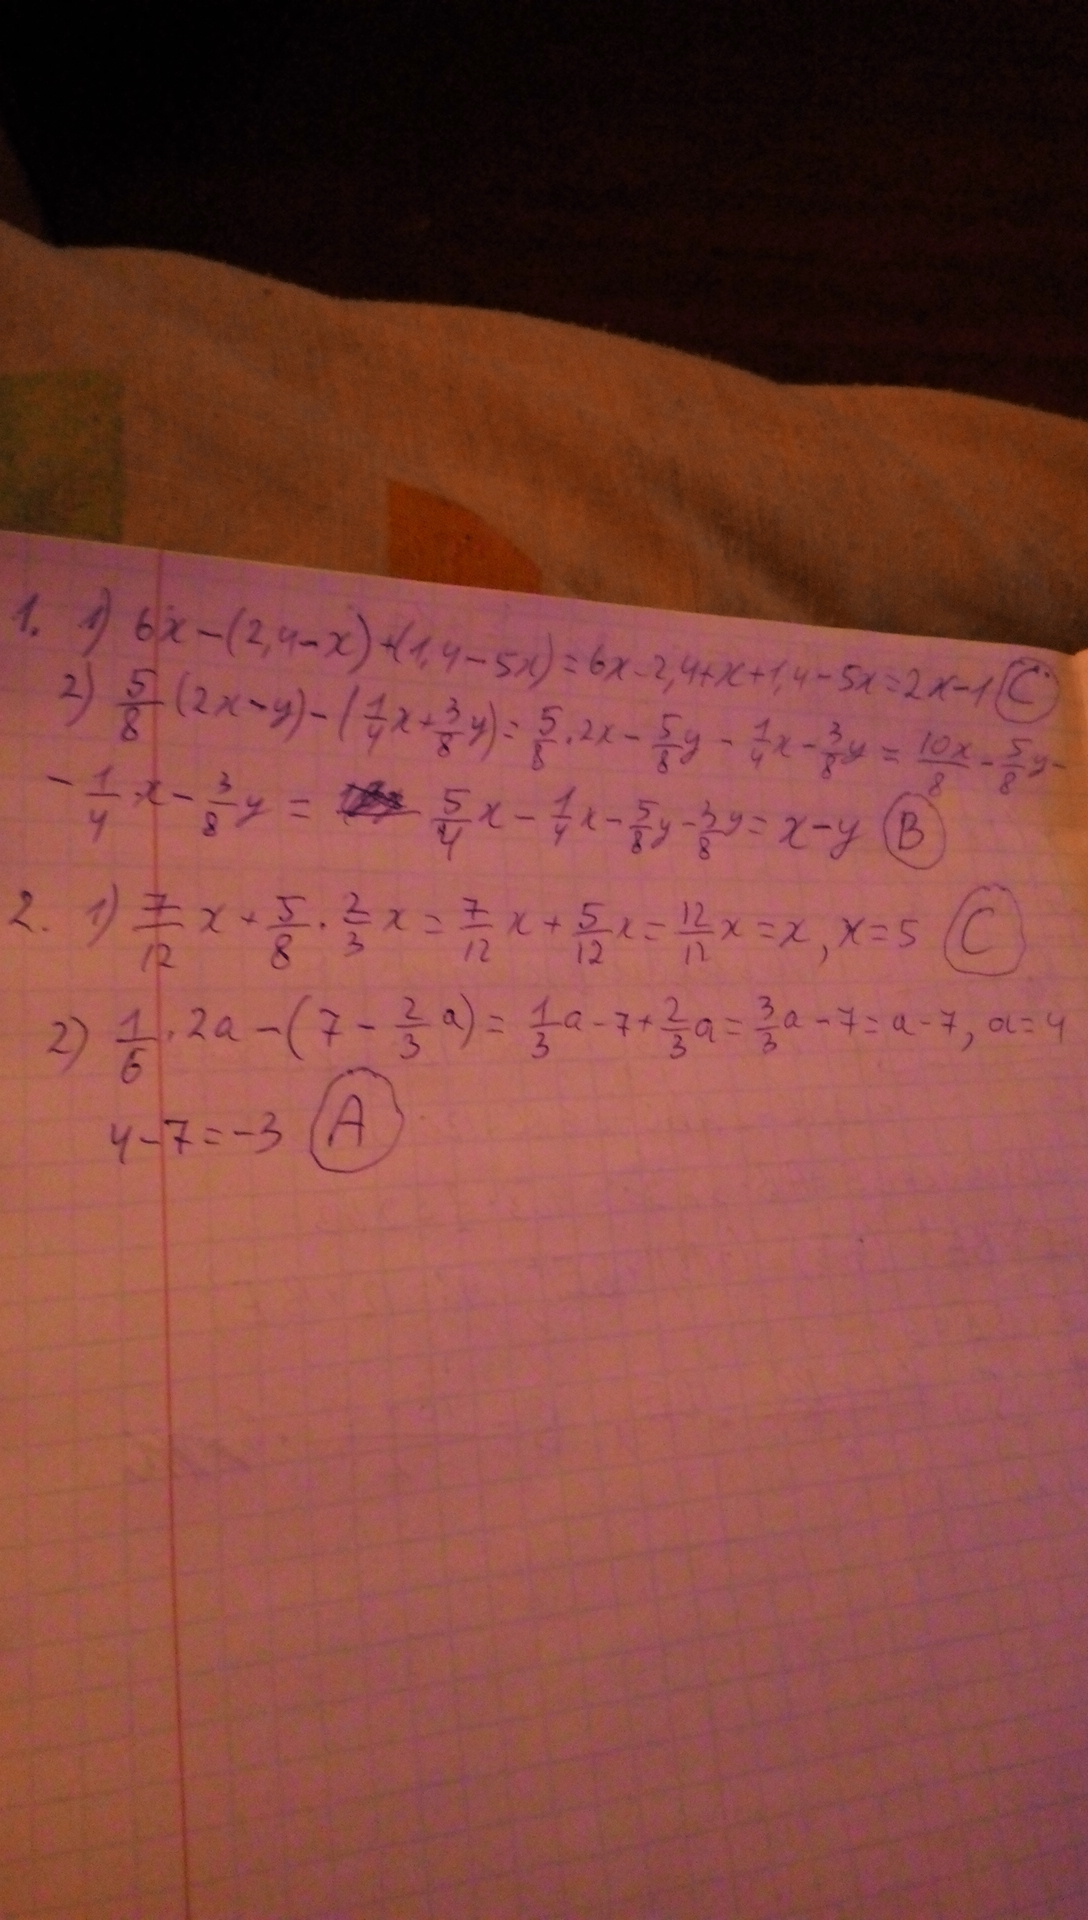 1. 1) 6x-(2,4-x)+(1,4-5x)=6x-2,4+x+1,4-5x=2x-1 C
2) 5/8 (2x-y)-(1/4x+3/8y)=5/8·2x-5/8y-1/4x-3/8y=10x/8-5/8y-
-1/4x-3/8y= 5/4x-1/4x-5/8y-3/8y=x-y B
2. 1) 7/12x+5/8·2/3x=7/12x+5/12x=12/12x=x, x=5 C
2) 1/6·2a-(7-2/3a)=1/3a-7+2/3a=3/3a-7=a-7, a=4
4-7=-3 A